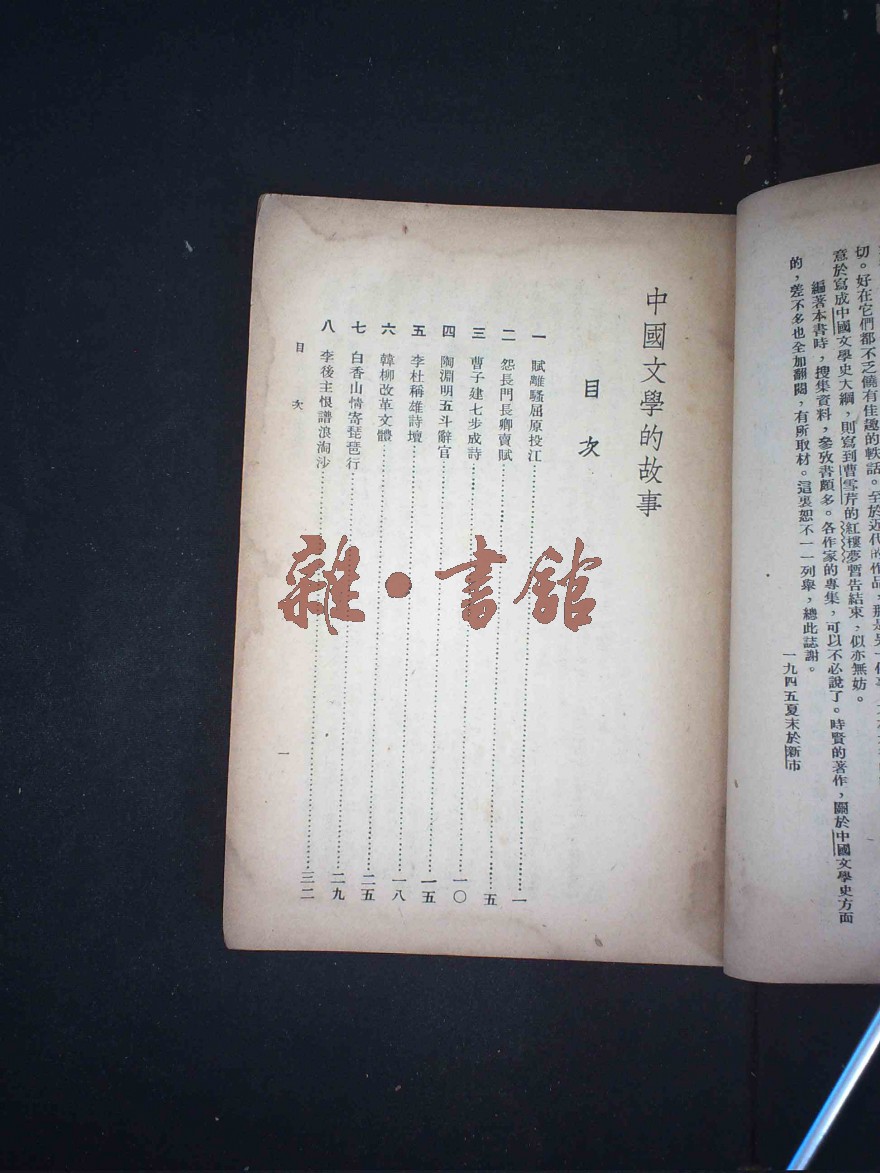 切。好在它們都不乏饒有佳趣的軼話。至於近代的作品，那是另一
意於寫成中國文學史大綱，則寫到曹雪芹的紅樓夢暫告結束，似亦無妨。
編著本書時，搜集資料，參攷書頗多。各作家的專集，可以不必說了。時賢的著作，關於中國文學史方面
的，差不多也全加翻閱，有所取材。這裏恕不一一列舉，總此誌謝。
一九四五夏末於新市
中國文學的故事
目次
一 賦離騷屈原投江……一
二 怨長門長卿賣賦……五
三 曹子建七步成詩……一〇
四 陶淵明五斗辭官……一五
五 李杜稱雄詩壇……一八
六 韓柳改革文體……二五
七 白香山情寄琵琶行……二九
八 李後主恨譜浪淘沙……三二
目次
一
雜·書館